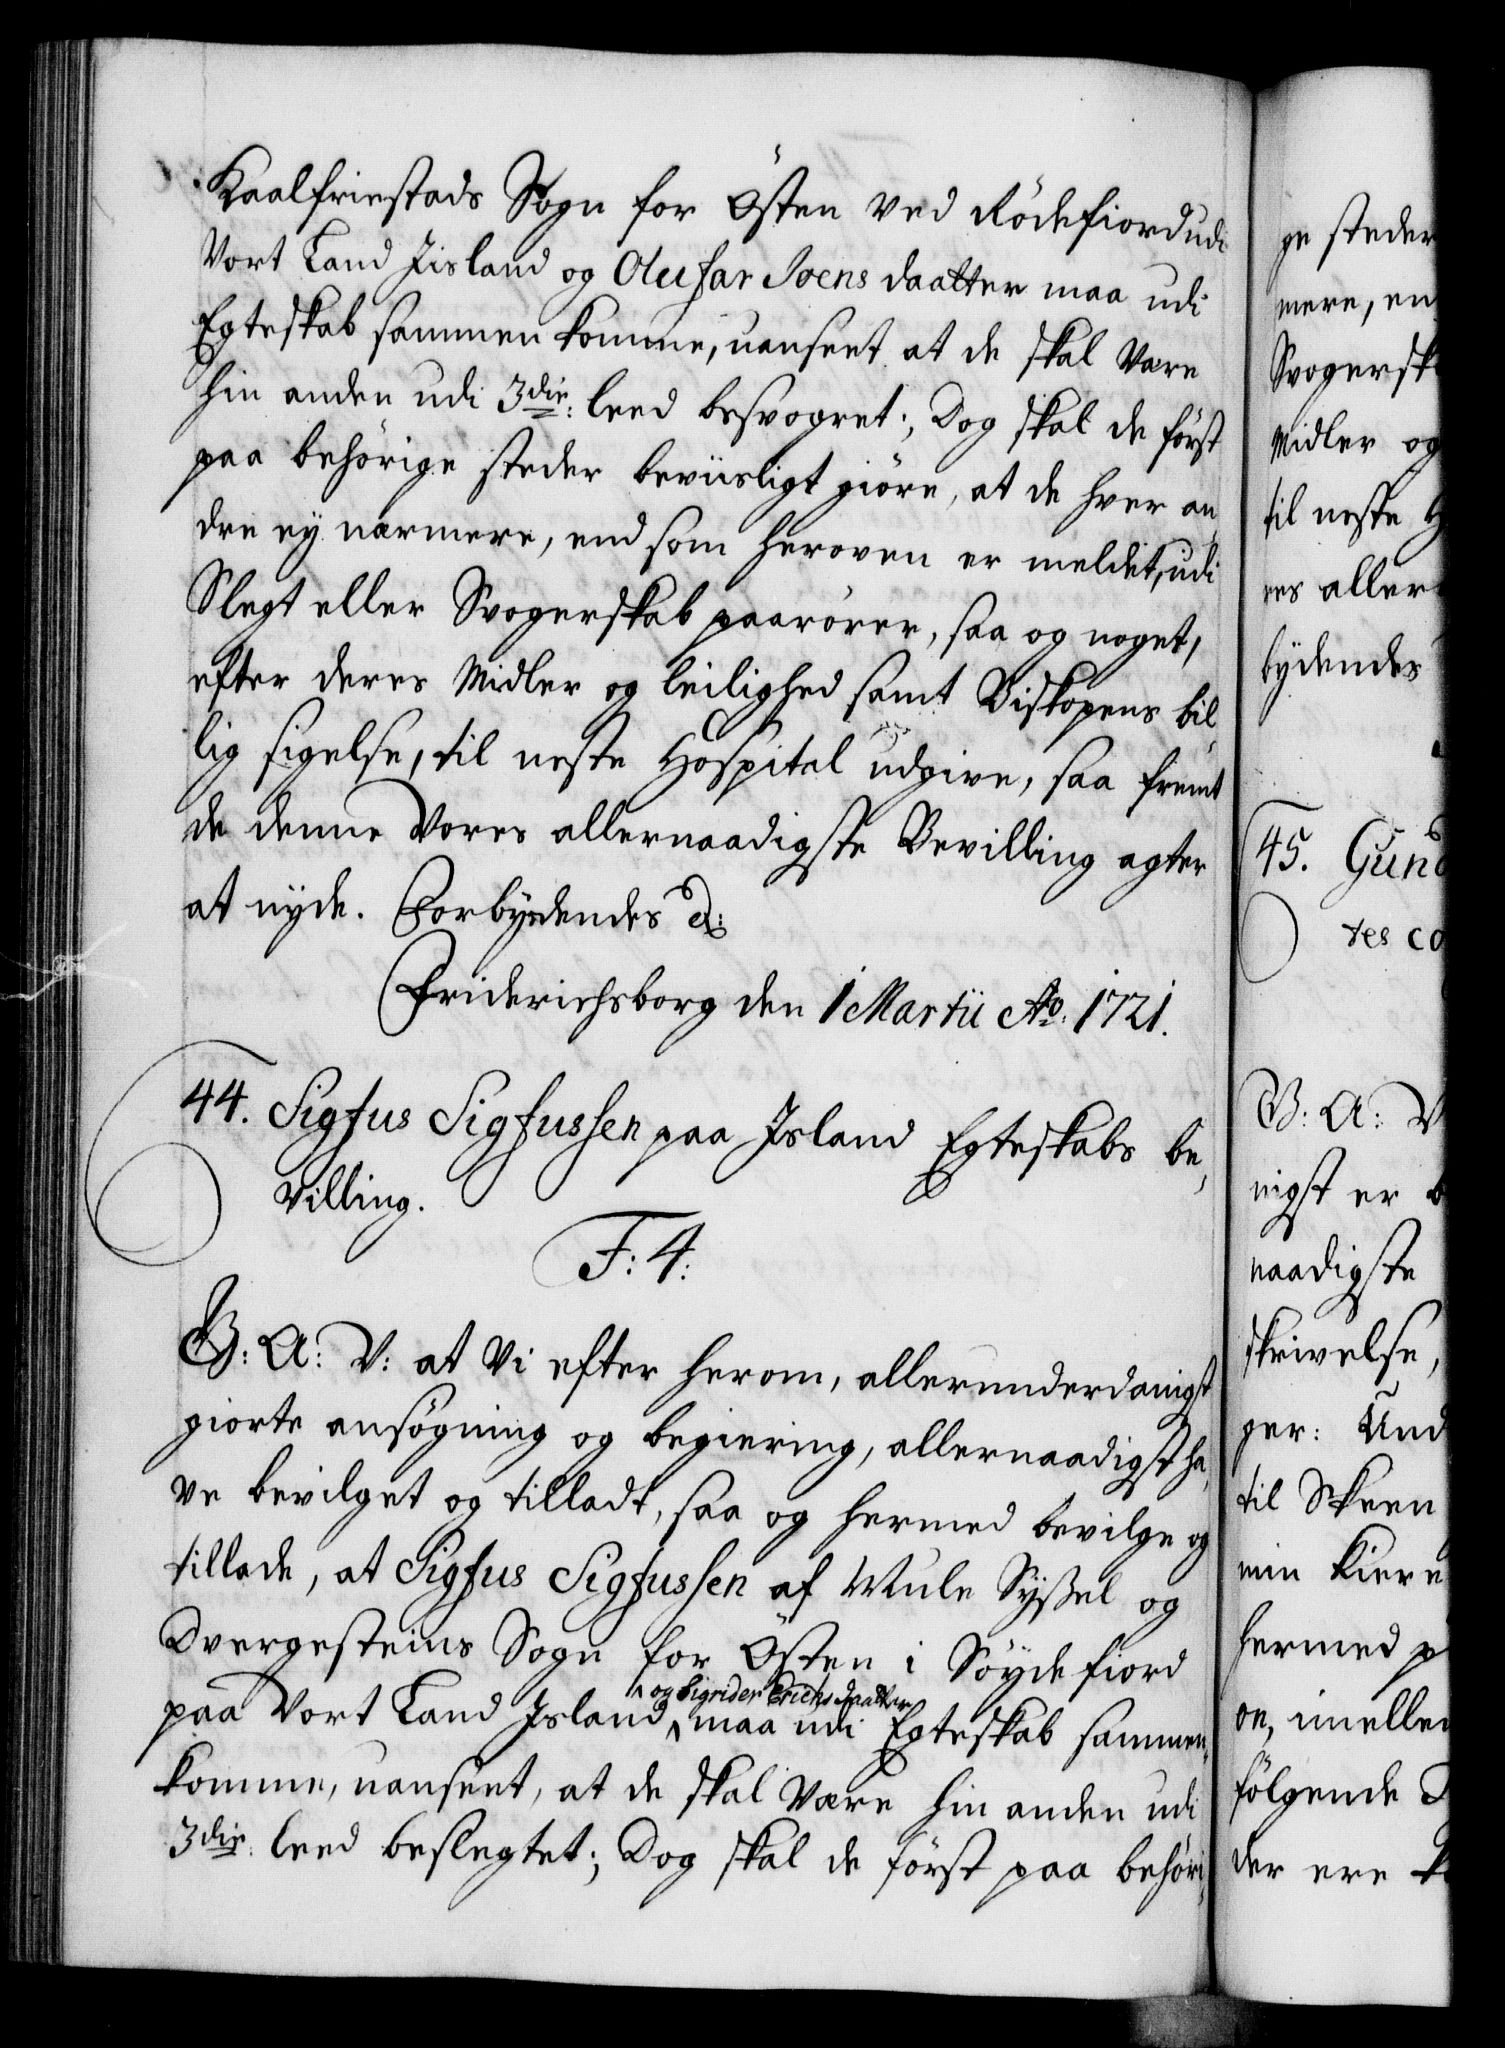 Kaalfriestads Sogn for Östen ved Rödefiord udi
Vort Land Jisland og Olufar Joens daatter maa udi
Egteskab sammen komme, uanseet at de skal være
hin anden udi 3die: leed besvogret; Dog skal de först
paa behörige steder beviisligt giöre, at de hver an,
dre ey nærmere, end som heroven er meldet, udi
Slegt eller Svogerskab paarörer, saa og noget,
efter deres Midler og leilighed samt Biskopens bil,
lig sigelse, til neste Hospital udgive, saa fremt
de denne Vores allernaadigste Bevilling agter
at nyde. Forbydendes &:
Friderichsborg den 1 Martii Ao: 1721.
44. Sigfus Sigfussen paa Island Egteskabs be,
villing.
F: 4:
G: A: V: at Vi efter herom, allerunderdanigst
giorte ansögning og begiering, allernaadigst ha,
ve bevilget og tilladt, saa og hermed bevilge og
tillade, at Sigfus Sigfussen af Mule Syssel og
Dvergesteins Sogn for Östen i Söydefiord
og Sigrider Erichs daatter
paa Vort Land Island, maa udi Egteskab sammen,
komme, uanseet, at de skal være hin anden udi
3die: leed beslegtet; Dog skal de först paa behöri,
ge steder
mere, en
Svogersk
Midler og
til neste H
res aller
bydendes
45. Gund
tes co
G: A: V
nigst er b
naadigste
skrivelse,
ger: Und
til Skeen
min kiere
hermed p
on, imellem
fölgende
der ere k